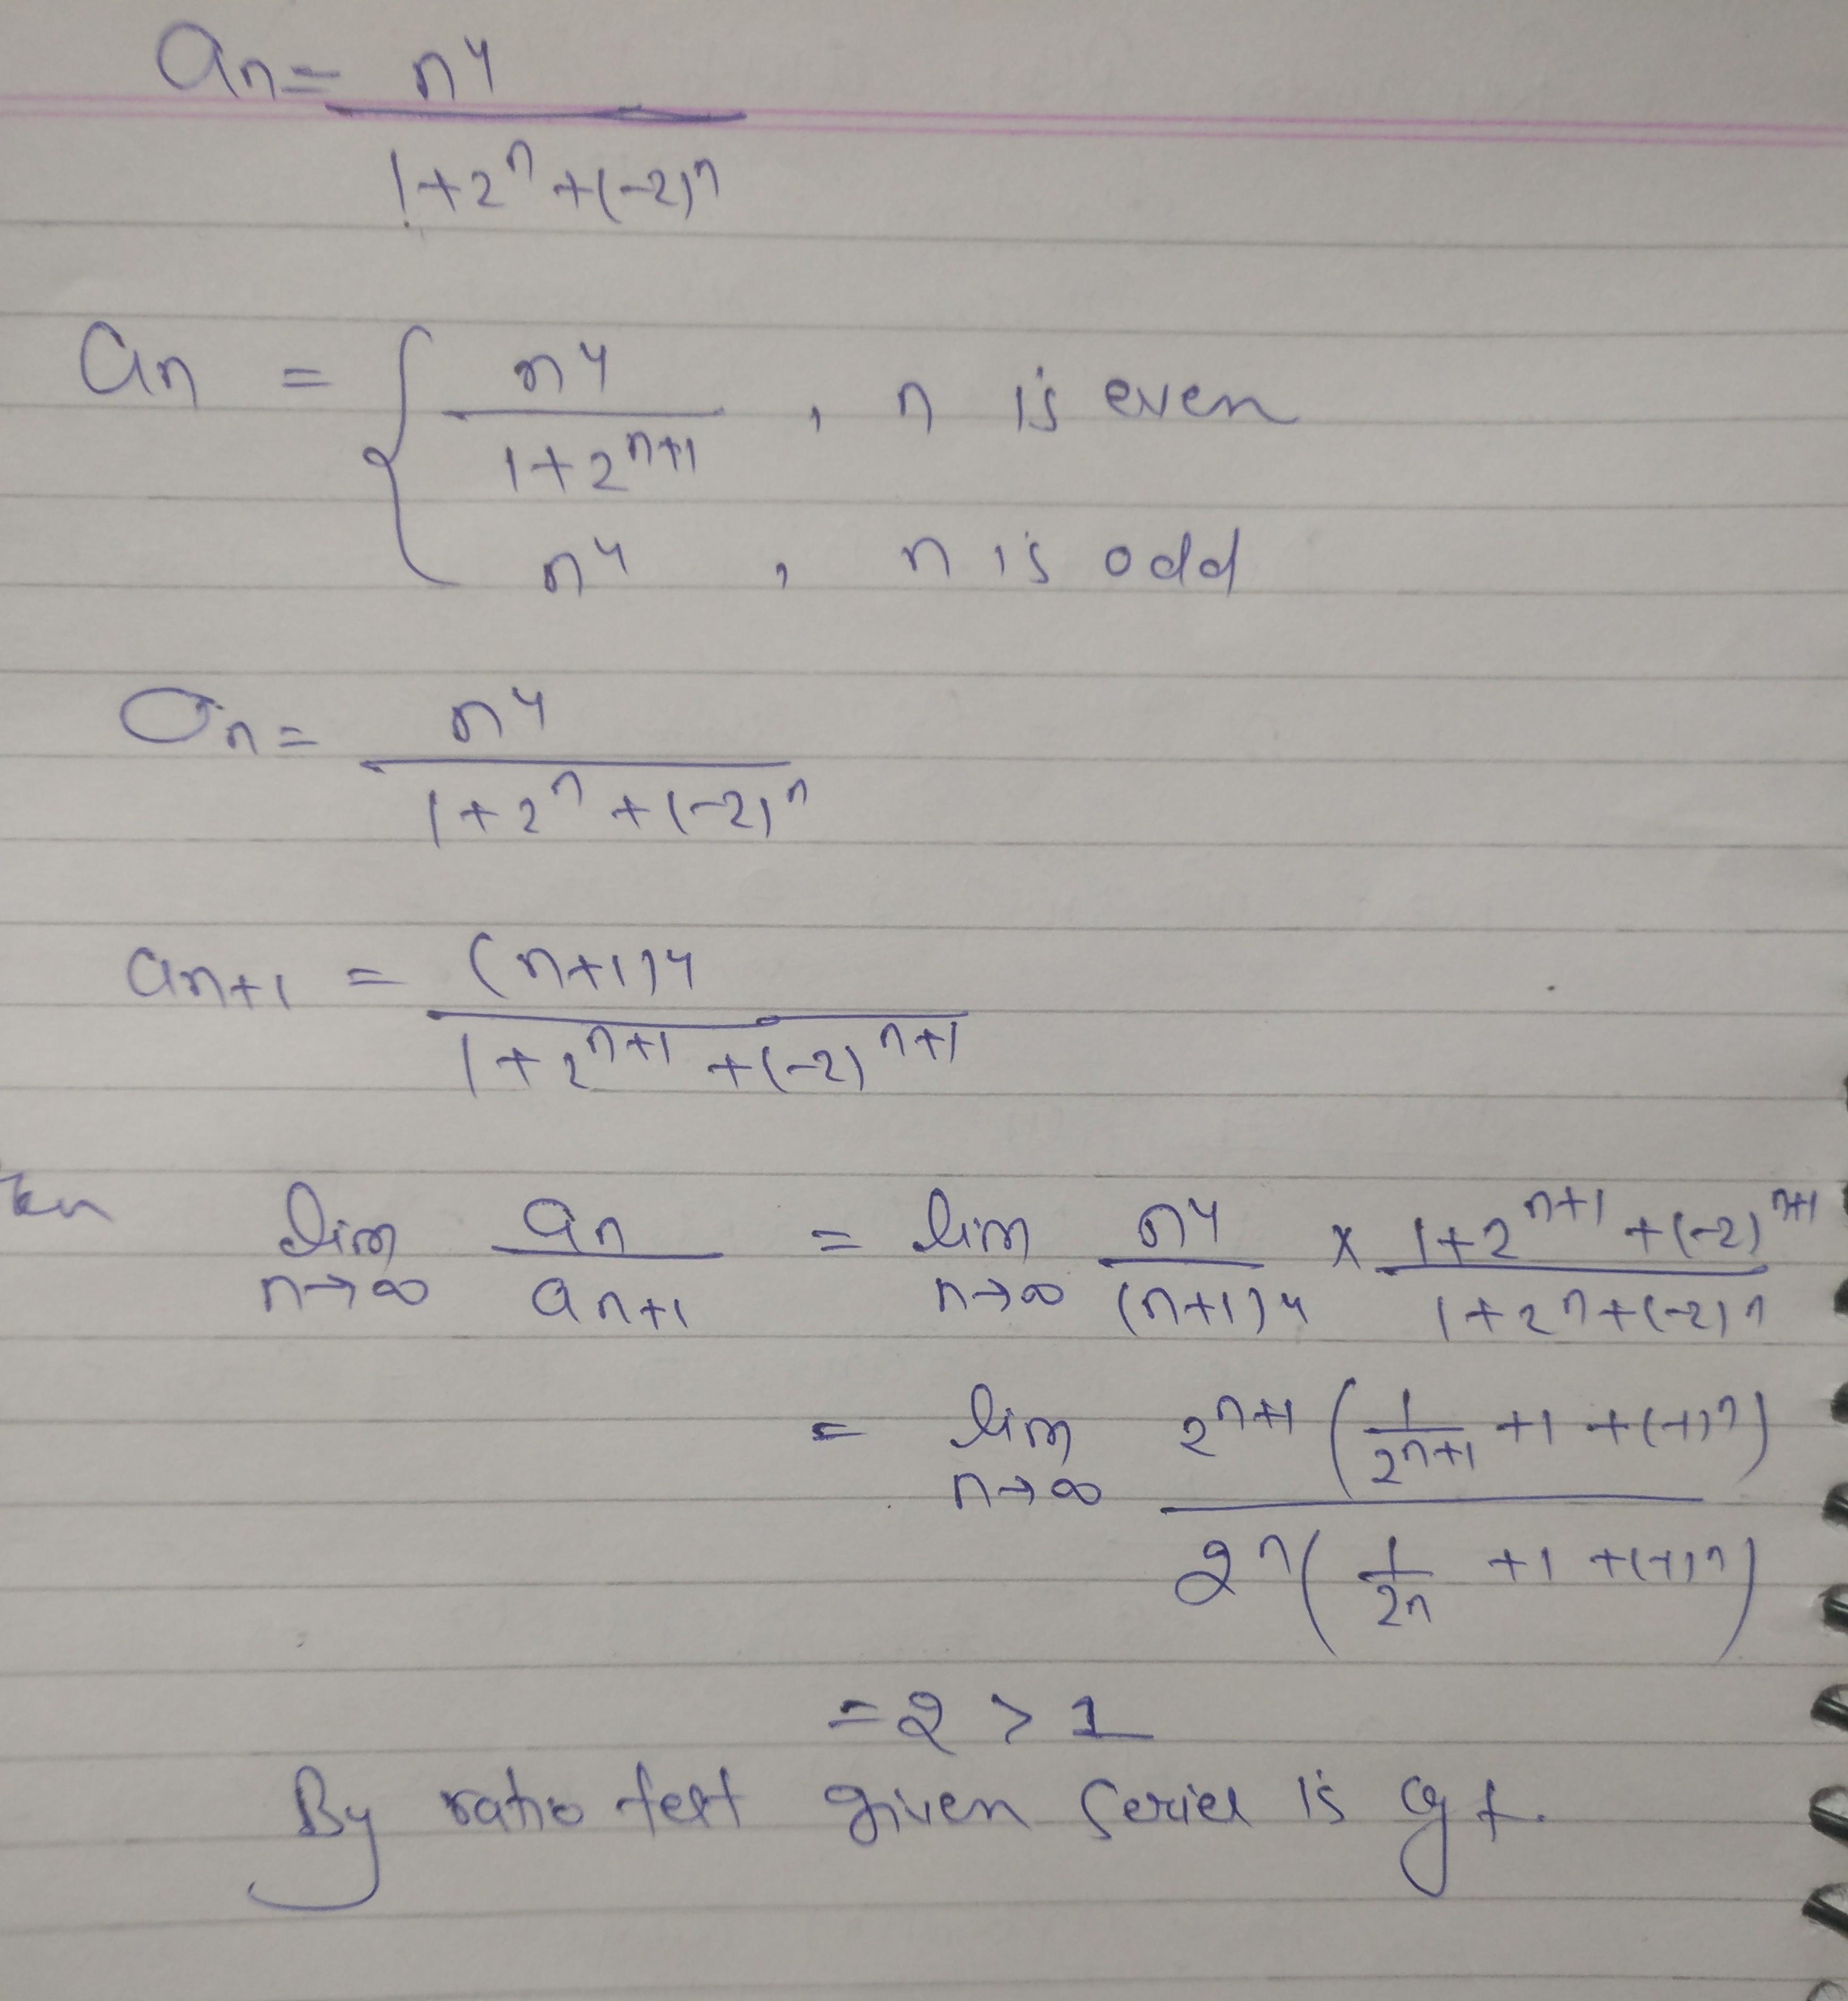 an = n⁴ / 1+2ⁿ+(-2)ⁿ
an = { n⁴ / 1+2ⁿ⁺¹ , n is even
n⁴ , n is odd
an = n⁴ / 1+2ⁿ+(-2)ⁿ
an+1 = (n+1)4 / 1+2ⁿ⁺¹+(-2)ⁿ⁺¹
lim n→∞ an / an+1 = lim n→∞ n⁴ / (n+1)4 × 1+2ⁿ⁺¹+(-2)ⁿ⁺¹ / 1+2ⁿ+(-2)ⁿ
= lim n→∞ 2ⁿ⁺¹ (1/2ⁿ⁺¹ +1 +(-1)ⁿ) / 2ⁿ (1/2ⁿ +1 +(-1)ⁿ)
= 2 > 1
By ratio test given series is cgt.